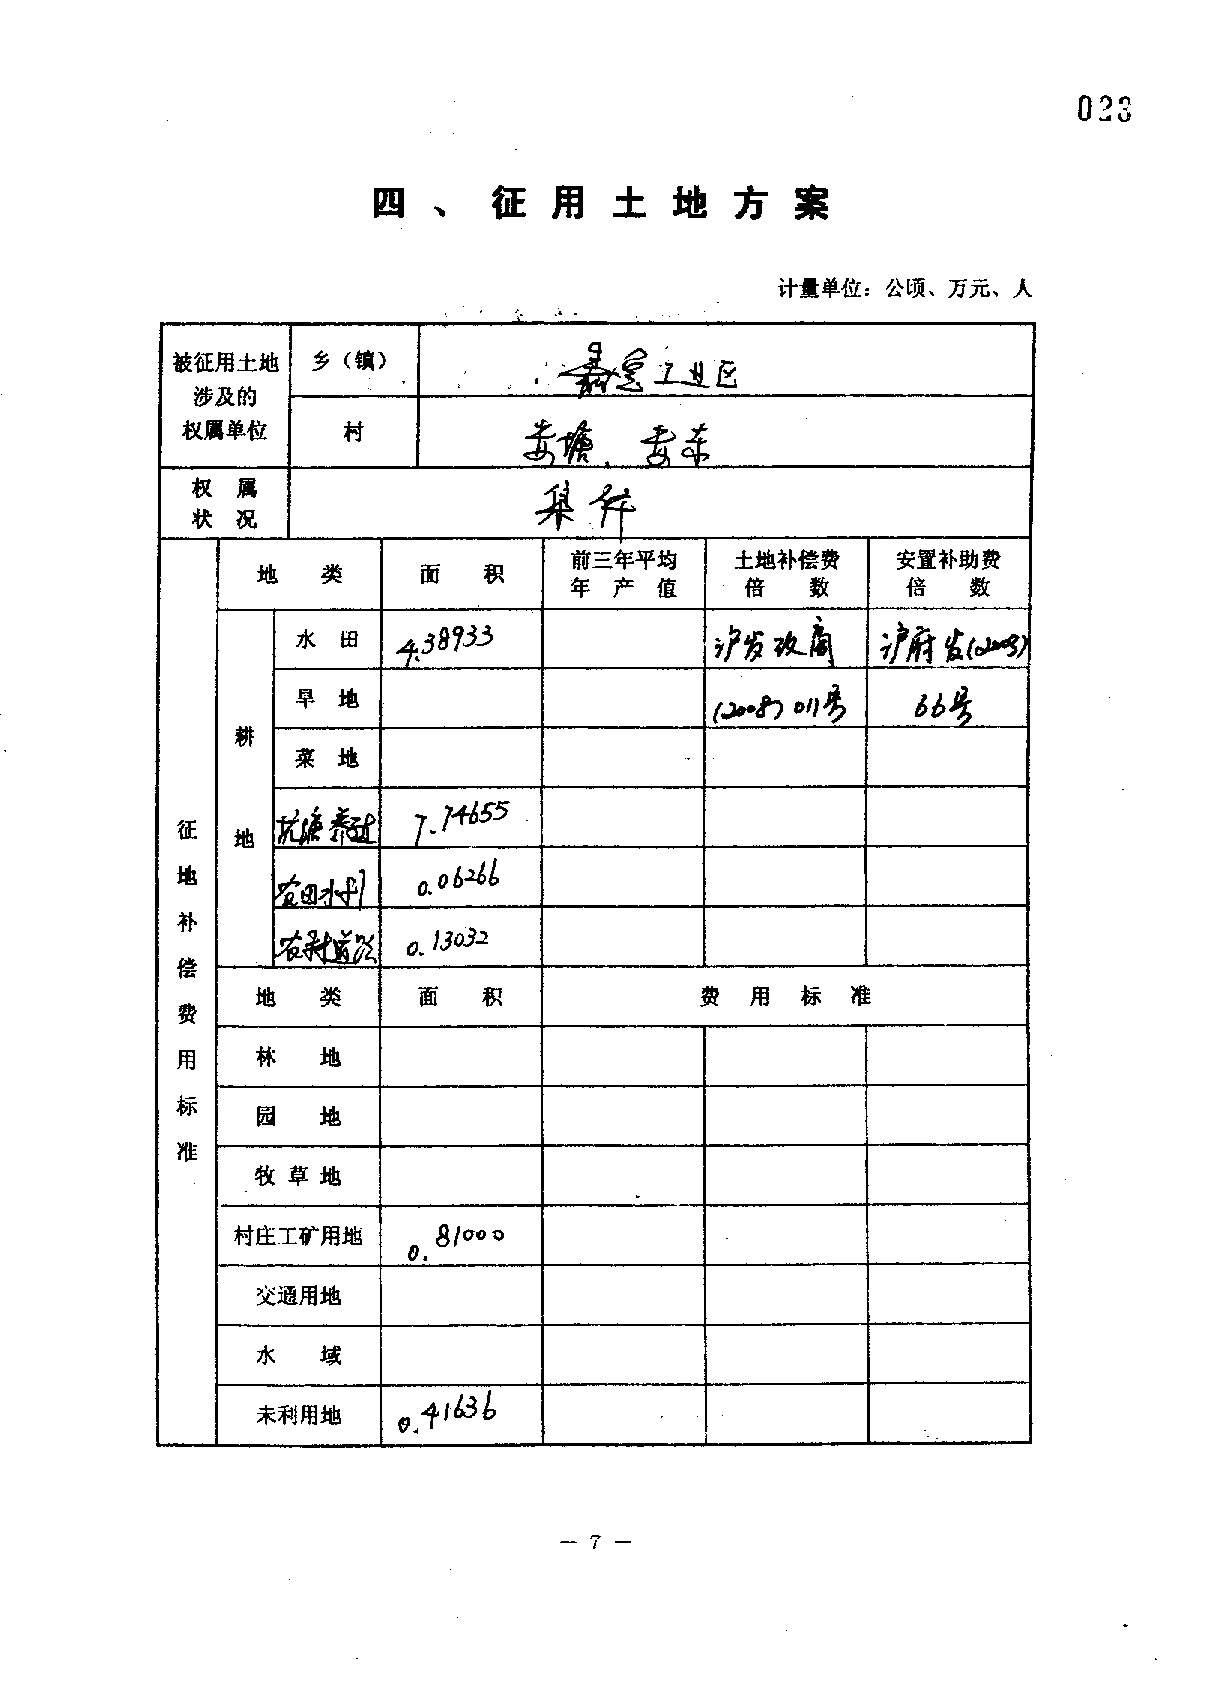 023
四、征用土地方案
计量单位：公顷、万元、人
被征用土地
涉及的
权属单位
乡（镇）
嘉定工业区
村
娄塘、娄东
权属
状况
集体
征地补偿费用标准
地类 面积 前三年平均年产值 土地补偿费倍数 安置补助费倍数
耕地
水田 4.38933 沪发改商 沪府发(2003)
旱地 (2008)011号 66号
菜地
坑塘养殖 7.74655
农田水利 0.06266
农村道路 0.13032
地类 面积 费用标准
林地
园地
牧草地
村庄工矿用地 0.81000
交通用地
水域
未利用地 0.41636
— 7 —